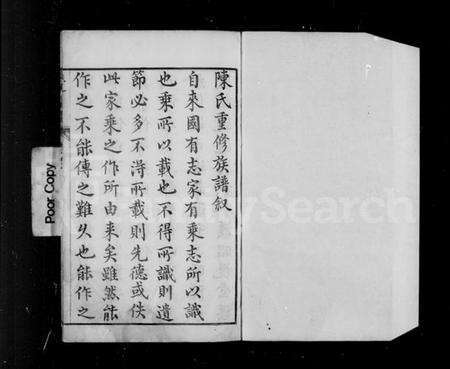 陳氏重修族譜叙
自來國有志家有乘志所以識
也乘所以載也不得所識則遺
節必多不淂所載則先德或佚
此家乘之作所由来矣雖然能
作之不能傳之難久也能作之
Poor Copy
FamilySearch